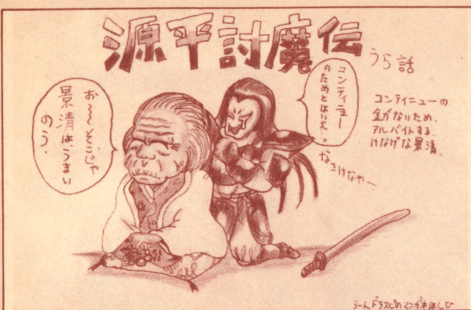 源平討魔伝
うら話
コンティニュー
のためとはいえ・・
なさけなやー
コンティニューの
金がないため、
アルバイトする、
けなげな景清。
お〜〜そこじゃ
景清は、うまい
のう.